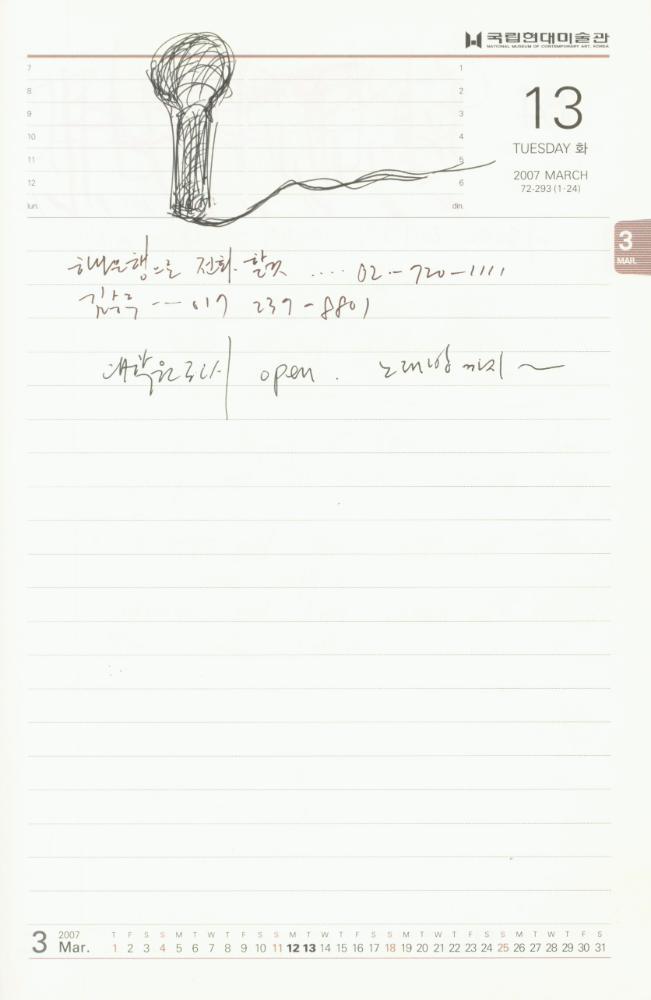 국립현대미술관
NATIONAL MUSEUM OF CONTEMPORARY ART, KOREA
13
TUESDAY 화
2007 MARCH
72-293 (1·24)
7 1
8 2
9 3
10 4
11 5
12 6
lun. din.
3
MAR.
해방은행으로 전화. 할것 .... 02-720-1111
017 237-8801
대학원 open. 노래방까지~
3 2007 Mar.
T F S S M T W T F S S M T W T F S S M T W T F S S M T W T F S
1 2 3 4 5 6 7 8 9 10 11 12 13 14 15 16 17 18 19 20 21 22 23 24 25 26 27 28 29 30 31